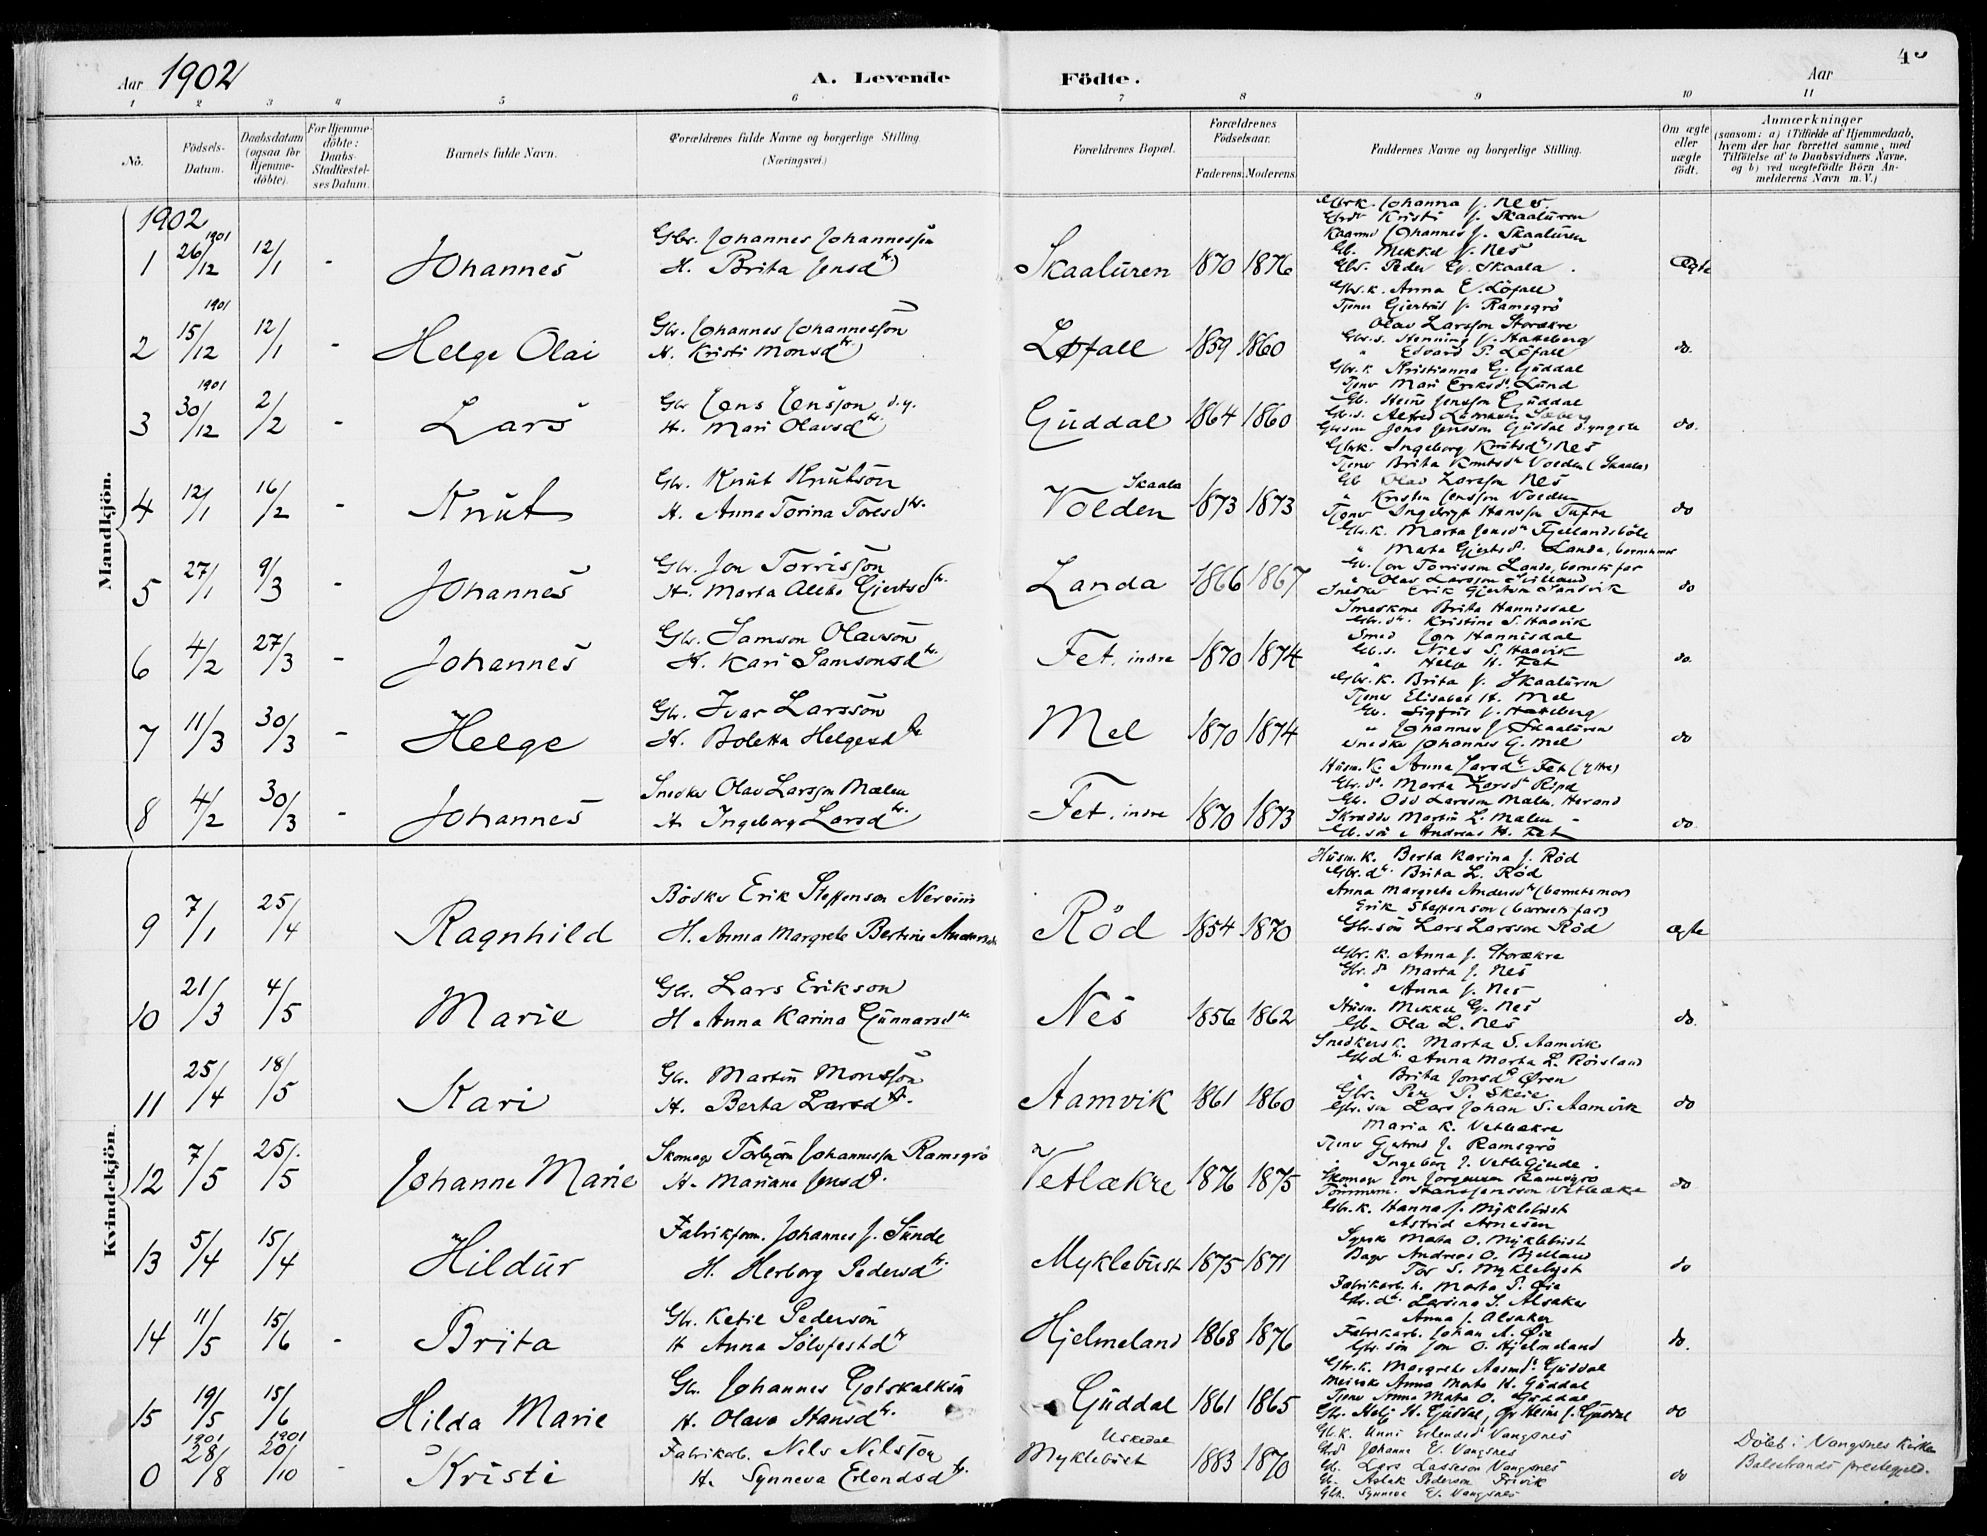 Aar 1902 A. Levende Födte. Aar
1 2 3 4 5 6 7 8 9 10 11
No. Födsels-Datum. Daabsdatum (ogsaa för Hjemme-döbte). For Hjemme-döbte: Daabs-Stadfæstel-ses Datum. Barnets fulde Navn. Forældrenes fulde Navne og borgerlige Stilling. (Næringsvei.) Forældrenes Bopæl. Forældrenes Födselsaar. Faderens. Moderens. Faddernes Navne og borgerlige Stilling. Om ægte eller uægte födt. Anmærkninger (saasom: a) i Tilfælde af Hjemmedaab, hvem der har forrettet samme, med Tilföielse af to Daabsvidners Navne, og b) ved uægtefödte Börn Anmelderens Navn m. V.)
Mandkjön.
1902
1 26/12 1901 12/1 - Johannes Gbr. Johannes Johannessen H. Brita Jensdtr Skaaluren 1870 1876 Ægte
Gbrk. Johanna J. Nes
Gbrdtr Kristi J. Skaaluren
Johannes J. Skaaluren
Gb. Mikkel J. Nes
Gbr. Peder Skaala
2 15/12 1901 12/1 - Helge Olai Gbr. Johannes Johannesson H. Kristi Monsdtr Løfall 1859 1860 do.
Gbr.k. Anna E. Löfall
Tjener Gjertrud J. Ramsgrö
Olav Larsson Storækre
Gbr.s. Henning J. Hatteberg
" Edvard P. Löfall
3 30/12 1901 2/2 - Lars Gbr Jens Jensson d.y. H. Mari Olavsdtr Guddal 1864 1860 do.
Gbr.k Kristianna G. Guddal
Tjener Mari Eriksdtr Lund
Gb. Hein Jensson Guddal
Jens Jensson Guddal d. yngste
4 12/1 16/2 - Knut Gbr. Knut Knutson H. Anna Torina Toresdtr. Skaala Volden 1873 1873 do
Gbrk. Ingeborg Knutsdtr Nes
Tjener Brita Knutsdtr Volden (Skaala)
Gb Olav Larsson Nes
" Kristen Jensson Volden
Tjener Ingebrigt Hansson Tufte
5 27/1 9/3 - Johannes Gbr. Jon Torrisson H. Marta Gjertsdtr. Landa 1866 1867 do
Gbr.k. Marta Jonsdtr Fjellandsböle
" Marta Gjertsdtr. Landa, barnets mor
Gb. Jon Torrisson Landa, barnets far
" Olav Larsson
Snedker Erik Gjertson Sandvik
6 4/2 27/3 - Johannes Gbr. Samson Olavson H. Kari Samsonsdtr Fet. indre 1870 1874 do.
Brita Hannisdal
Gbr.dtr. Kristine S. Haavik
Smed Jon Hannisdal
Gb.s. Nils S. Haavik
" Helje H. Fet
7 11/3 30/3 - Helge Gbr. Ivar Larsson H. Boletta Helgesdtr Mel 1870 1874 do
Gbr.k. Brita J. Skaaluren
Tjener Elisabet H. Mel
Gb. Sigfus J. Hatteberg
" Johannes J. Skaaluren
Snedker Johannes G. Mel
8 4/2 30/3 - Johannes Snedker Olav Larsson Mælen H. Ingeborg Larsdtr. Fet. indre 1870 1873 do.
Husm.k. Anna Larsdtr. Fet (ytre)
Gbr.dtr. Marta Larsdtr Ripel
Gb. Odd Larsson Malen, Herand
Skrædder Martin L. Malen
Gb. sön Andreas H. Fet
Kvindekjön.
9 7/1 25/4 Ragnhild Bödker Erik Steffenson H. Anna Margrete Bertine Andersdtr Röd 1854 1870 ægte
Husm.k. Berta Karina J. Röd
Gbr.dtr. Brita L. Röd
Anna Margrete Andersdtr (barnets mor)
Erik Steffenson (barnets far)
Gbr. sön Lars Larsson Röd
10 21/3 4/5 Marie Gbr. Lars Erikson H Anna Karina Gunnarsdtr Nes 1856 1862 do.
Gbr.k. Anna J. Storækre
Gbr.dtr Marta J. Nes
" Anna J. Nes
Husm. Mikkel G. Nes
Gb. Ola L. Nes
11 25/4 18/5 Kari Gbr. Martin Monsson H. Berta Larsdtr. Aamvik 1861 1860 do
Snedkersk. Marta S. Aamvik
Gbrdtr. Anna Marta L. Rörsland
Brita Jonsdtr Øren
Gbr. Per P. Skeie
Gbr. sön Lars Johan S. Aamvik
12 7/5 25/5 Johanne Marie Skomager Torbjön Johannesson Ramsgrö H. Mariane Jensdtr. Vetlækre 1876 1875 do
Maria K. Vetleækre
Tjener Gjertrud J. Ramsgrö
Ingeborg J. Vetlegjerde
Skomager Jon Jorgensen Ramsgrö
Tömmerm. Hans Jensson Vetleækre
13 5/4 15/4 Hildur Fabrikform. Johannes J. Sunde H. Herborg Pedersdtr. Myklebust 1875 1871 do
Gbr.k. Hanna J. Myklebust
Astrid Arnesen
Marta O. Myklebust
Bager Andreas O. Bjelland
Tor S. Myklebust
14 11/5 15/6 - Brita Gbr. Ketil Pederson H Anna Sölvfestdtr Hjelmeland 1868 1876 do.
Fabrikarb.k. Marta P. Øie
Gbr.dtr. Larsina S. Alsaker
Anna J. Alsaker
Fabrikarb. Johan A. Øie
Gbr. sön Jon O. Hjelmeland
15 19/5 15/6 Hilda Marie Gbr. Johannes Gotskalksön H. Olava Hansdtr. Guddal 1861 1865 do
Gbr.k. Margrete Aasmdtr Guddal
Anna Marta H. Guddal
Tjener Anna Marta O. Guddal
Gbr. Helj H. Guddal, Gbr Hein J. Guddal
0 28/8 1901 20/10 1901 - Kristi Fabrikarb. Nils Nilsson H. Synneva Erlendsdtr. Uskedal Myklebust 1883 1870 do
Gb.k. Unni Erlendsd Vangsnes
Gbrdtr Johanne E. Vangsnes
Gb. Lars Lasseson Vangsnes
Gb. Aslak Pederson Frivik
Gbk. Synneve E. Vangsnes
Döbt i Vangsnes Kirke
Balestrands prestegjeld.